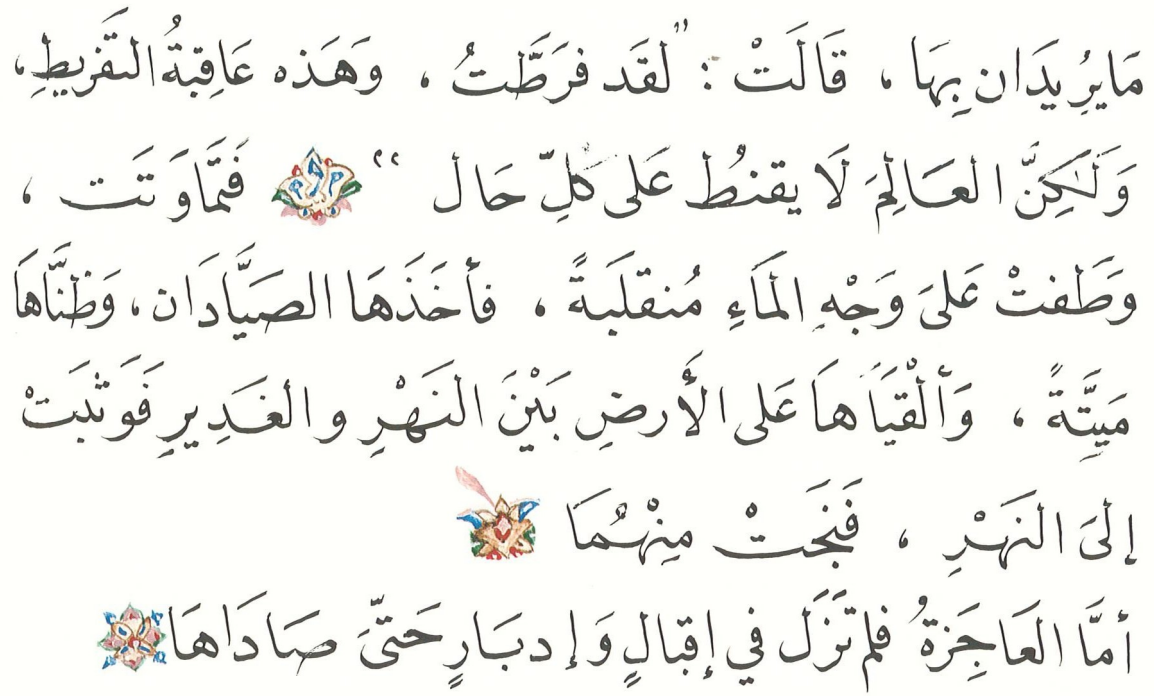 مَايرُيدَان بِهَا ، قَالَتْ : ”لقَد فرَطَّتُ ، وَهَذه عَاقِبةُ التَفريطِ،
وَلَـٰكِنَّ العَـالِمَ لَا يقنُط عَلى كلِّ حَال “ فَتمَّاوَتَت ،
وَطَفتْ عَلىَ وَجْهِ المَاءِ مُنقلَبةً ، فأخَذَهَا الصَيَّادَان ، وَظنَّاهَا
مَيِتَّةً ، وَألْقَيَاهاَ عَلى الأَرضِ بَيْنَ النَهْرِ والغَدِيرِ فَوثبَتْ
إلىَ النَهَرْ ، فَنجَتْ مِنْهُمَا
أمَّا العَاجِزةُ فلم تَزَل في إقبالٍ وَإدبَـارٍ حَتىَّ صَادَاهَا